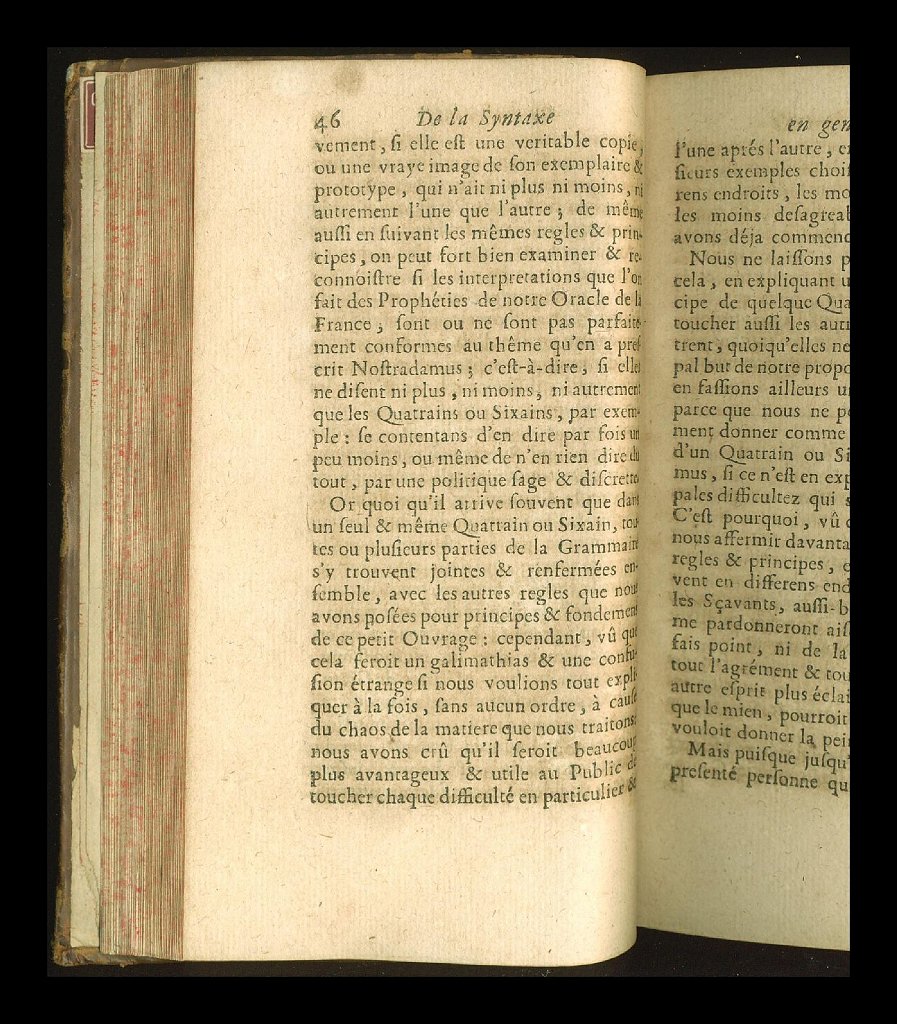 46 De la Syntaxe
vement, ſi elle eſt une veritable copie,
ou une vraye image de ſon exemplaire &
prototype, qui n'ait ni plus ni moins, ni
autrement l'une que l'autre; de même
auſſi en ſuivant les mêmes regles & prin-
cipes, on peut fort bien examiner & re-
connoiſtre ſi les interpretations que l'on
fait des Prophéties de notre Oracle de la
France, ſont ou ne ſont pas parfaite-
ment conformes au thême qu'en a preſ
crit Noſtradamus; c'eſt-à-dire, ſi elles
ne diſent ni plus, ni moins, ni autrement
que les Quatrains ou Sixains, par exem-
ple: ſe contentans d'en dire par fois un
peu moins, ou même de n'en rien dire du
tout, par une politique ſage & diſcrette.
Or quoi qu'il arrive ſouvent que dans
un ſeul & même Quatrain ou Sixain, tou-
tes ou pluſieurs parties de la Grammaire
s'y trouvent jointes & renfermées en-
ſemble, avec les autres regles que nous
avons poſées pour principes & fondement
de ce petit Ouvrage: cependant, vû que
cela ſeroit un galimathias & une confu-
ſion étrange ſi nous voulions tout expli
quer à la fois, ſans aucun ordre, à cauſe
du chaos de la matiere que nous traitons:
nous avons crû qu'il ſeroit beaucoup
plus avantageux & utile au Public de
toucher chaque difficulté en particulier &
en gen
l'une aprés l'autre, e
ſieurs exemples choiſ
rens endroits, les mo
les moins deſagreab
avons déja commenc
Nous ne laiſſons p
cela, en expliquant u
cipe de quelque Qua
toucher auſſi les autr
trent, quoiqu'elles ne
pal but de notre propo
en faſſions ailleurs u
parce que nous ne p
ment donner comme
d'un Quatrain ou Si
mus, ſi ce n'eſt en exp
pales difficultez qui s
C'eſt pourquoi, vû
nous affermir davanta
regles & principes, e
vent en differens end
les Sçavants, auſſi-b
me pardonneront aiſ
fais point, ni de la
tout l'agrément & tou
autre eſprit plus éclai
que le mien, pourroit
vouloit donner la pei
Mais puiſque juſqu'
preſenté perſonne qu